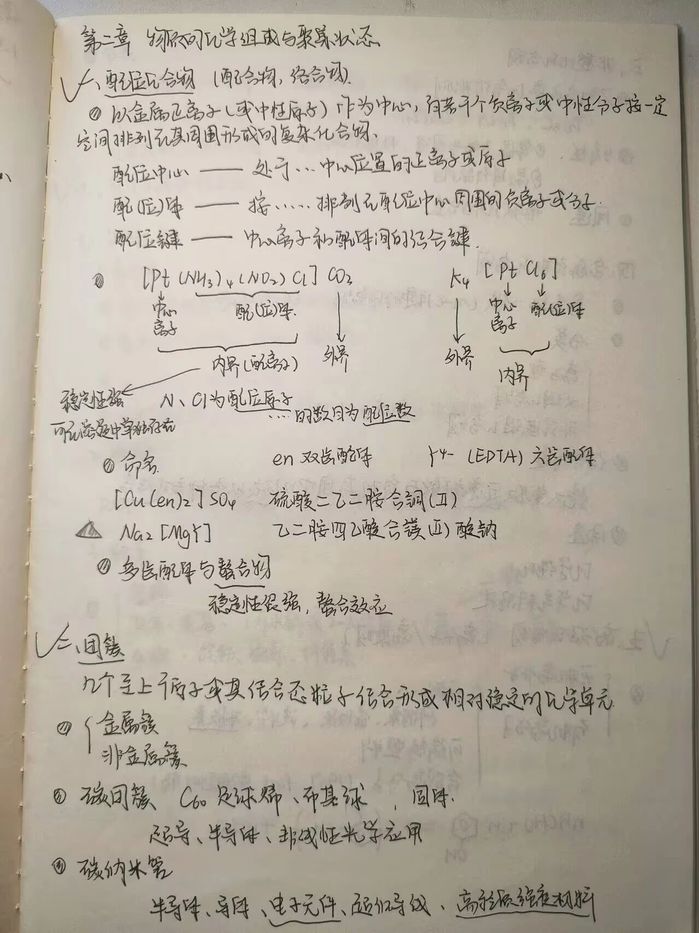 第二章 物质的化学组成与聚集状态
一、配位化合物 (配合物,络合物)
① 以金属正离子(或中性原子)作为中心,有若干个负离子或中性分子按一定
空间排列在其周围形成的复杂化合物.
配位中心 —— 处于…中心位置的正离子或原子
配(位)体 —— 按……排列在配位中心周围的负离子或分子.
配位键 —— 中心离子和配体间的结合键.
[Pt(NH3)4(NO2)Cl]CO3 K4[PtCl6]
中心离子 配(位)体 外界 中心离子 配(位)体
内界(配离子) 外界 内界
稳定性强 N、Cl为配位原子
可在溶液中单独存在 …的数目为配位数
命名 en 双齿配体 Y4- (EDTA) 六齿配体
[Cu(en)2]SO4 硫酸二乙二胺合铜(II)
Na2[MgY] 乙二胺四乙酸合镁(II)酸钠
多齿配体与螯合物
稳定性很强,螯合效应
二、团簇
几个至上千原子或其结合态粒子结合形成相对稳定的化学单元
① 金属簇
非金属簇
② 碳团簇 C60 足球烯、布基球,固体.
超导、半导体、非线性光学应用
③ 碳纳米管
半导体、导体、电子元件、超细导线、高轻质强度材料